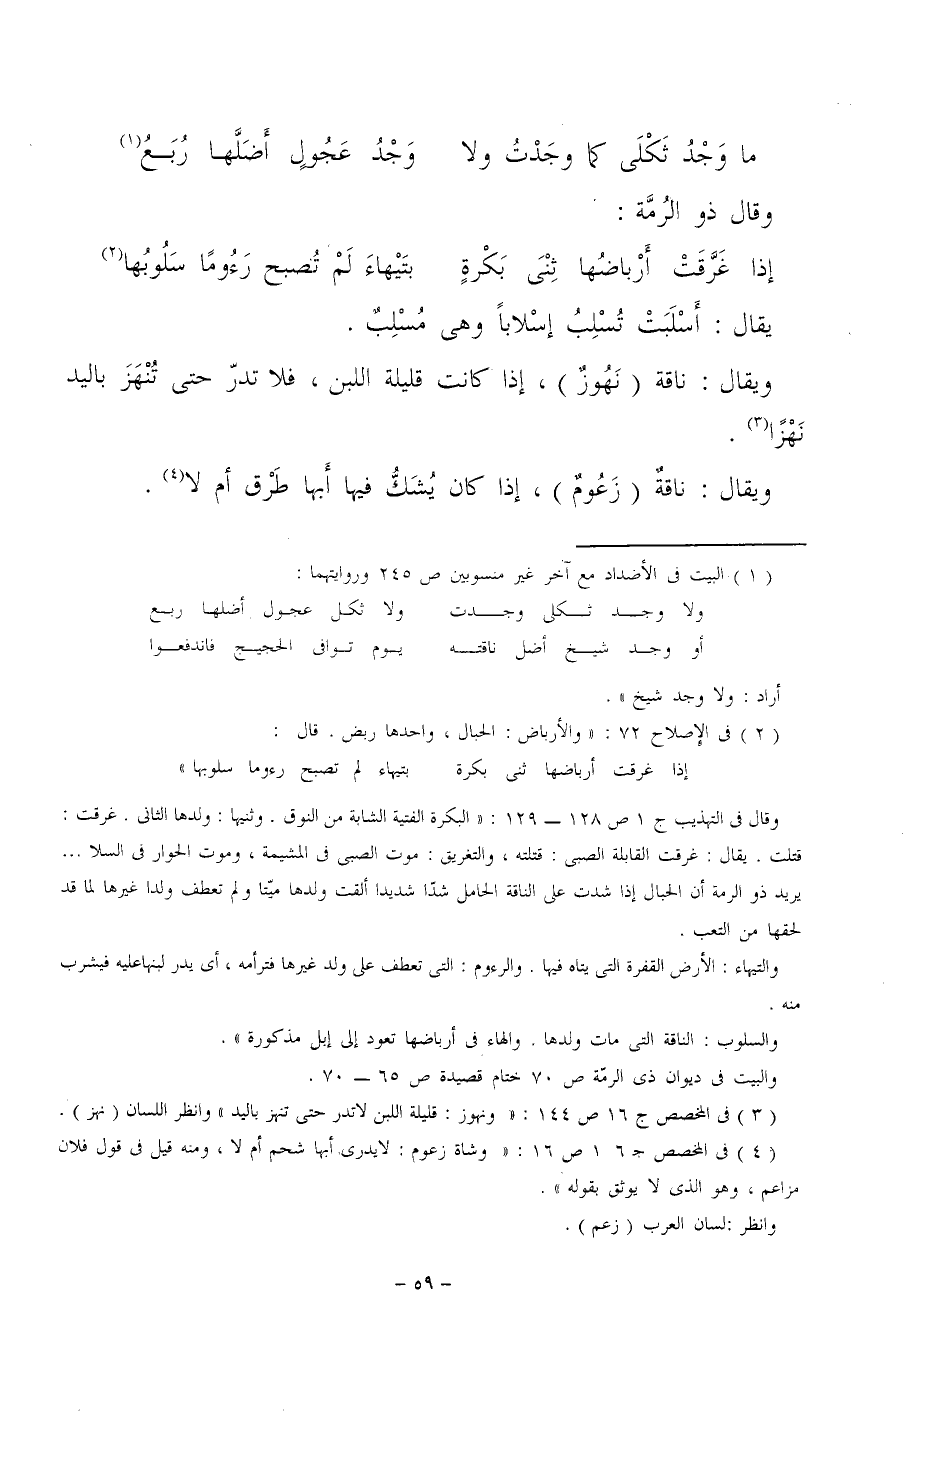 ما وَجْدُ ثَكْلَى كما وجَدْتُ ولا وَجْدُ عَجُولٍ أَضَلَّها رُبَعُ(١)
وقال ذو الرُمَّة :
إذا غَرَّقَتْ أَرْباضُها ثِنْىَ بَكْرةٍ بتَيْهاءَ لَمْ تُصبح رَءُومًا سَلُوبُها(٢)
يقال : أَسْلَبَتْ تُسْلِبُ إسْلاباً وهى مُسْلِبٌ .
ويقال : ناقة ( نَهُوزٌ ) ، إذا كانت قليلة اللبن ، فلا تدرّ حتى تُنْهَزَ باليد
نَهْزًا(٣) .
ويقال : ناقةٌ ( زَعُومٌ ) ، إذا كان يُشَكُّ فيها أَبها طَرْق أم لا(٤) .
( ١ ) البيت فى الأضداد مع آخر غير منسوبين ص ٢٤٥ وروايتهما :
ولا وجــد ثــكلى وجــدت ولا ثكـل عجـول أضلهـا ربـع
أو وجـد شيـخ أضل ناقتــه يـوم تـوافى الحجيـج فاندفعـوا
أراد : ولا وجد شيخ » .
( ٢ ) فى الإصلاح ٧٢ : « والأرباض : الحبال ، واحدها ربض . قال :
إذا غرقت أرباضها ثنى بكرة بتيهاء لم تصبح رءوما سلوبها »
وقال فى التهذيب ج ١ ص ١٢٨ — ١٢٩ : « البكرة الفتية الشابة من النوق . وثنيها : ولدها الثانى . غرقت :
قتلت . يقال : غرقت القابلة الصبى : قتلته ، والتغريق : موت الصبى فى المشيمة ، وموت الحوار فى السلا ...
يريد ذو الرمة أن الحبال إذا شدت على الناقة الحامل شدّا شديدا ألقت ولدها ميّتا ولم تعطف ولدا غيرها لما قد
لحقها من التعب .
والتيهاء : الأرض القفرة التى يتاه فيها . والرءوم : التى تعطف على ولد غيرها فترأمه ، أى يدر لبنهاعليه فيشرب
منه .
والسلوب : الناقة التى مات ولدها . والهاء فى أرباضها تعود إلى إبل مذكورة » .
والبيت فى ديوان ذى الرمّة ص ٧٠ ختام قصيدة ص ٦٥ — ٧٠ .
( ٣ ) فى المخصص ج ١٦ ص ١٤٤ : « ونهوز : قليلة اللبن لاتدر حتى تنهز باليد » وانظر اللسان ( نهز ) .
( ٤ ) فى المخصص جـ ١٦ ص ١٦ : « وشاة زعوم : لايدرى أبها شحم أم لا ، ومنه قيل فى قول فلان
مزاعم ، وهو الذى لا يوثق بقوله » .
وانظر :لسان العرب ( زعم ) .
- ٥٩ -